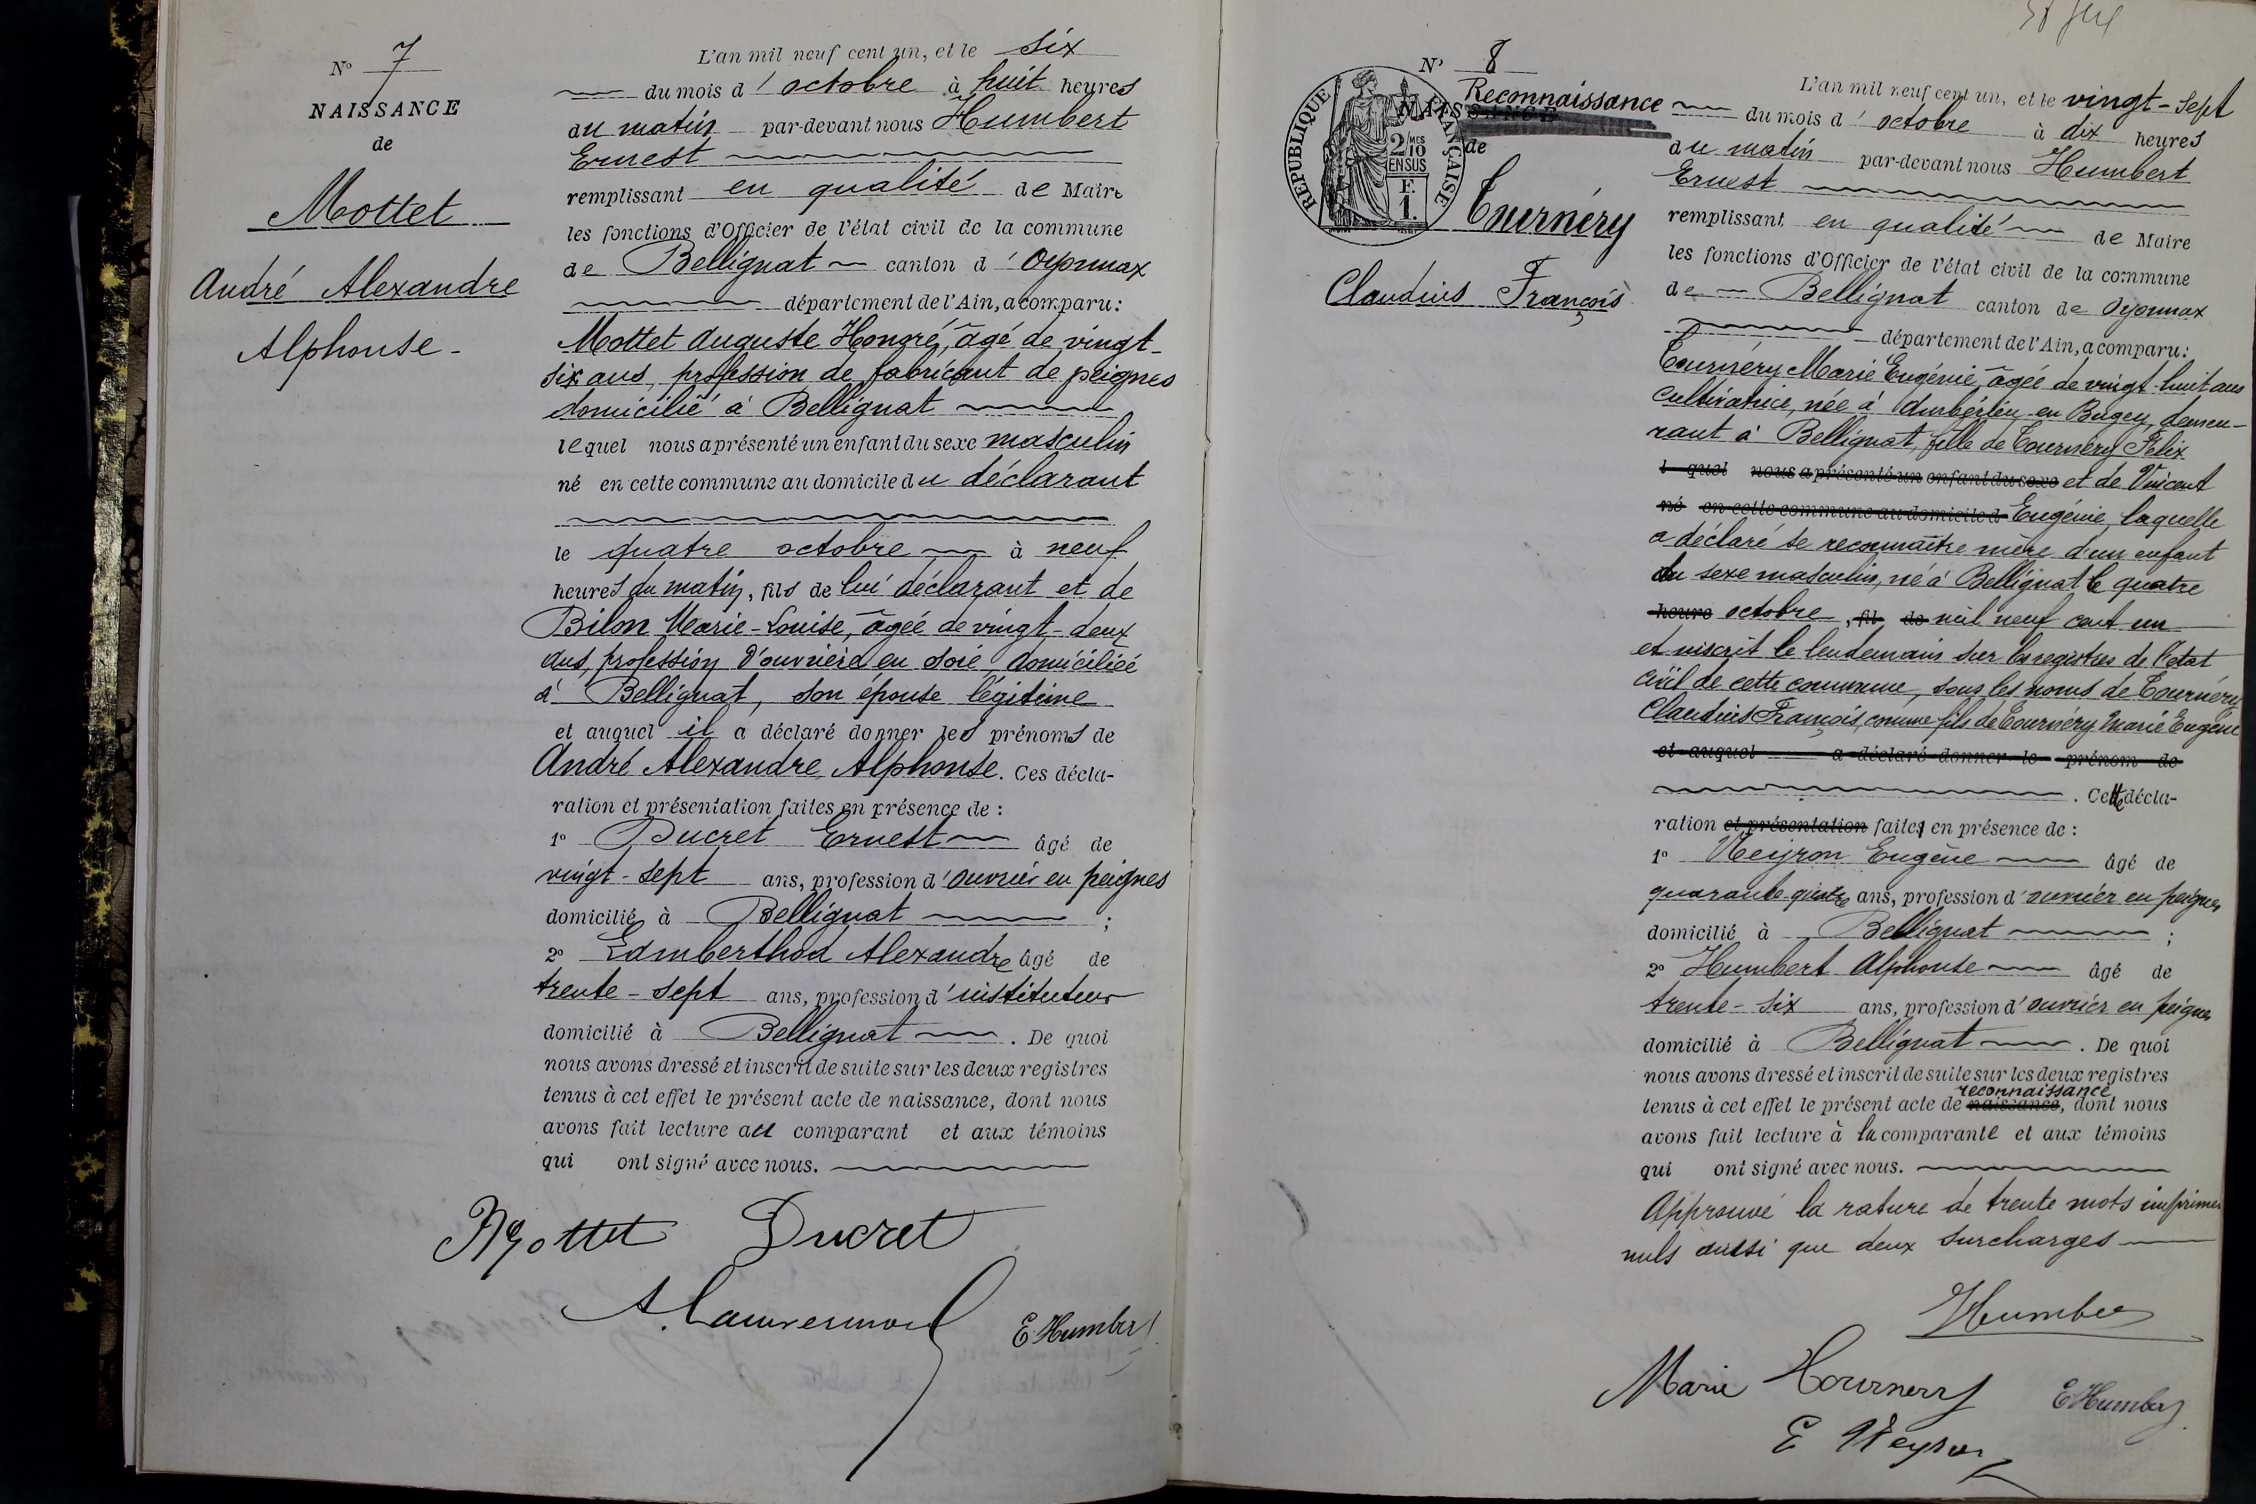 N° 7
NAISSANCE
de
Mottet
André Alexandre
Alphonse
L'an mil neuf cent un, et le six
du mois d'octobre à huit heures
du matin par-devant nous Humbert
Ernest
remplissant en qualité de Maire
les fonctions d'Officier de l'état civil de la commune
de Bellignat canton d'Oyonnax
département de l'Ain, a comparu :
Mottet Auguste Honoré, âgé de vingt-
six ans, profession de fabricant de peignes
domicilié à Bellignat
lequel nous a présenté un enfant du sexe masculin
né en cette commune au domicile du déclarant
le quatre octobre à neuf
heures du matin, fils de lui déclarant et de
Bilon Marie-Louise, âgée de vingt-deux
ans, profession d'ouvrière en soie, domiciliée
à Bellignat, son épouse légitime
et auquel il a déclaré donner les prénoms de
André Alexandre Alphonse. Ces décla-
ration et présentation faites en présence de :
1° Ducret Ernest âgé de
vingt-sept ans, profession d'ouvrier en peignes
domicilié à Bellignat ;
2° Lamberthod Alexandre âgé de
trente-sept ans, profession d'instituteur
domicilié à Bellignat. De quoi
nous avons dressé et inscrit de suite sur les deux registres
tenus à cet effet le présent acte de naissance, dont nous
avons fait lecture au comparant et aux témoins
qui ont signé avec nous.
Mottet Ducret
E Humbert
N° 8
RÉPUBLIQUE FRANÇAISE
2/10 MES
EN SUS
F.
1.
Reconnaissance
NAISSANCE
de
Tournéry
Claudius François
L'an mil neuf cent un, et le vingt-sept
du mois d'octobre à dix heures
du matin par-devant nous Humbert
Ernest
remplissant en qualité de Maire
les fonctions d'Officier de l'état civil de la commune
de Bellignat canton de Oyonnax
département de l'Ain, a comparu :
Tournéry Marie Eugénie, âgée de vingt-huit ans
cultivatrice, née à Ambérieu en Bugey, demeu-
rant à Bellignat, fille de Tournéry Félix
l quel nous a présenté un enfant du sexe et de Vincent
né en cette commune au domicile d Eugénie, laquelle
a déclaré se reconnaître mère d'un enfant
du sexe masculin, né à Bellignat le quatre
heure octobre, fil de mil neuf cent un
et inscrit le lendemain sur les registres de l'état
civil de cette commune, sous les noms de Tournéry
Claudius François, comme fils de Tournéry Marie Eugénie
et auquel a déclaré donner le prénom de
. Cette décla-
ration et présentation faites en présence de :
1° Neyron Eugène âgé de
quarante-quatre ans, profession d'ouvrier en peignes
domicilié à Bellignat ;
2° Humbert Alphonse âgé de
trente-six ans, profession d'ouvrier en peignes
domicilié à Bellignat. De quoi
nous avons dressé et inscrit de suite sur les deux registres
reconnaissance
tenus à cet effet le présent acte de naissance, dont nous
avons fait lecture à la comparante et aux témoins
qui ont signé avec nous.
Approuvé la rature de trente mots imprimés
nuls aussi que deux surcharges
Humbert
Marie Tournery E Humbert
E Neyron